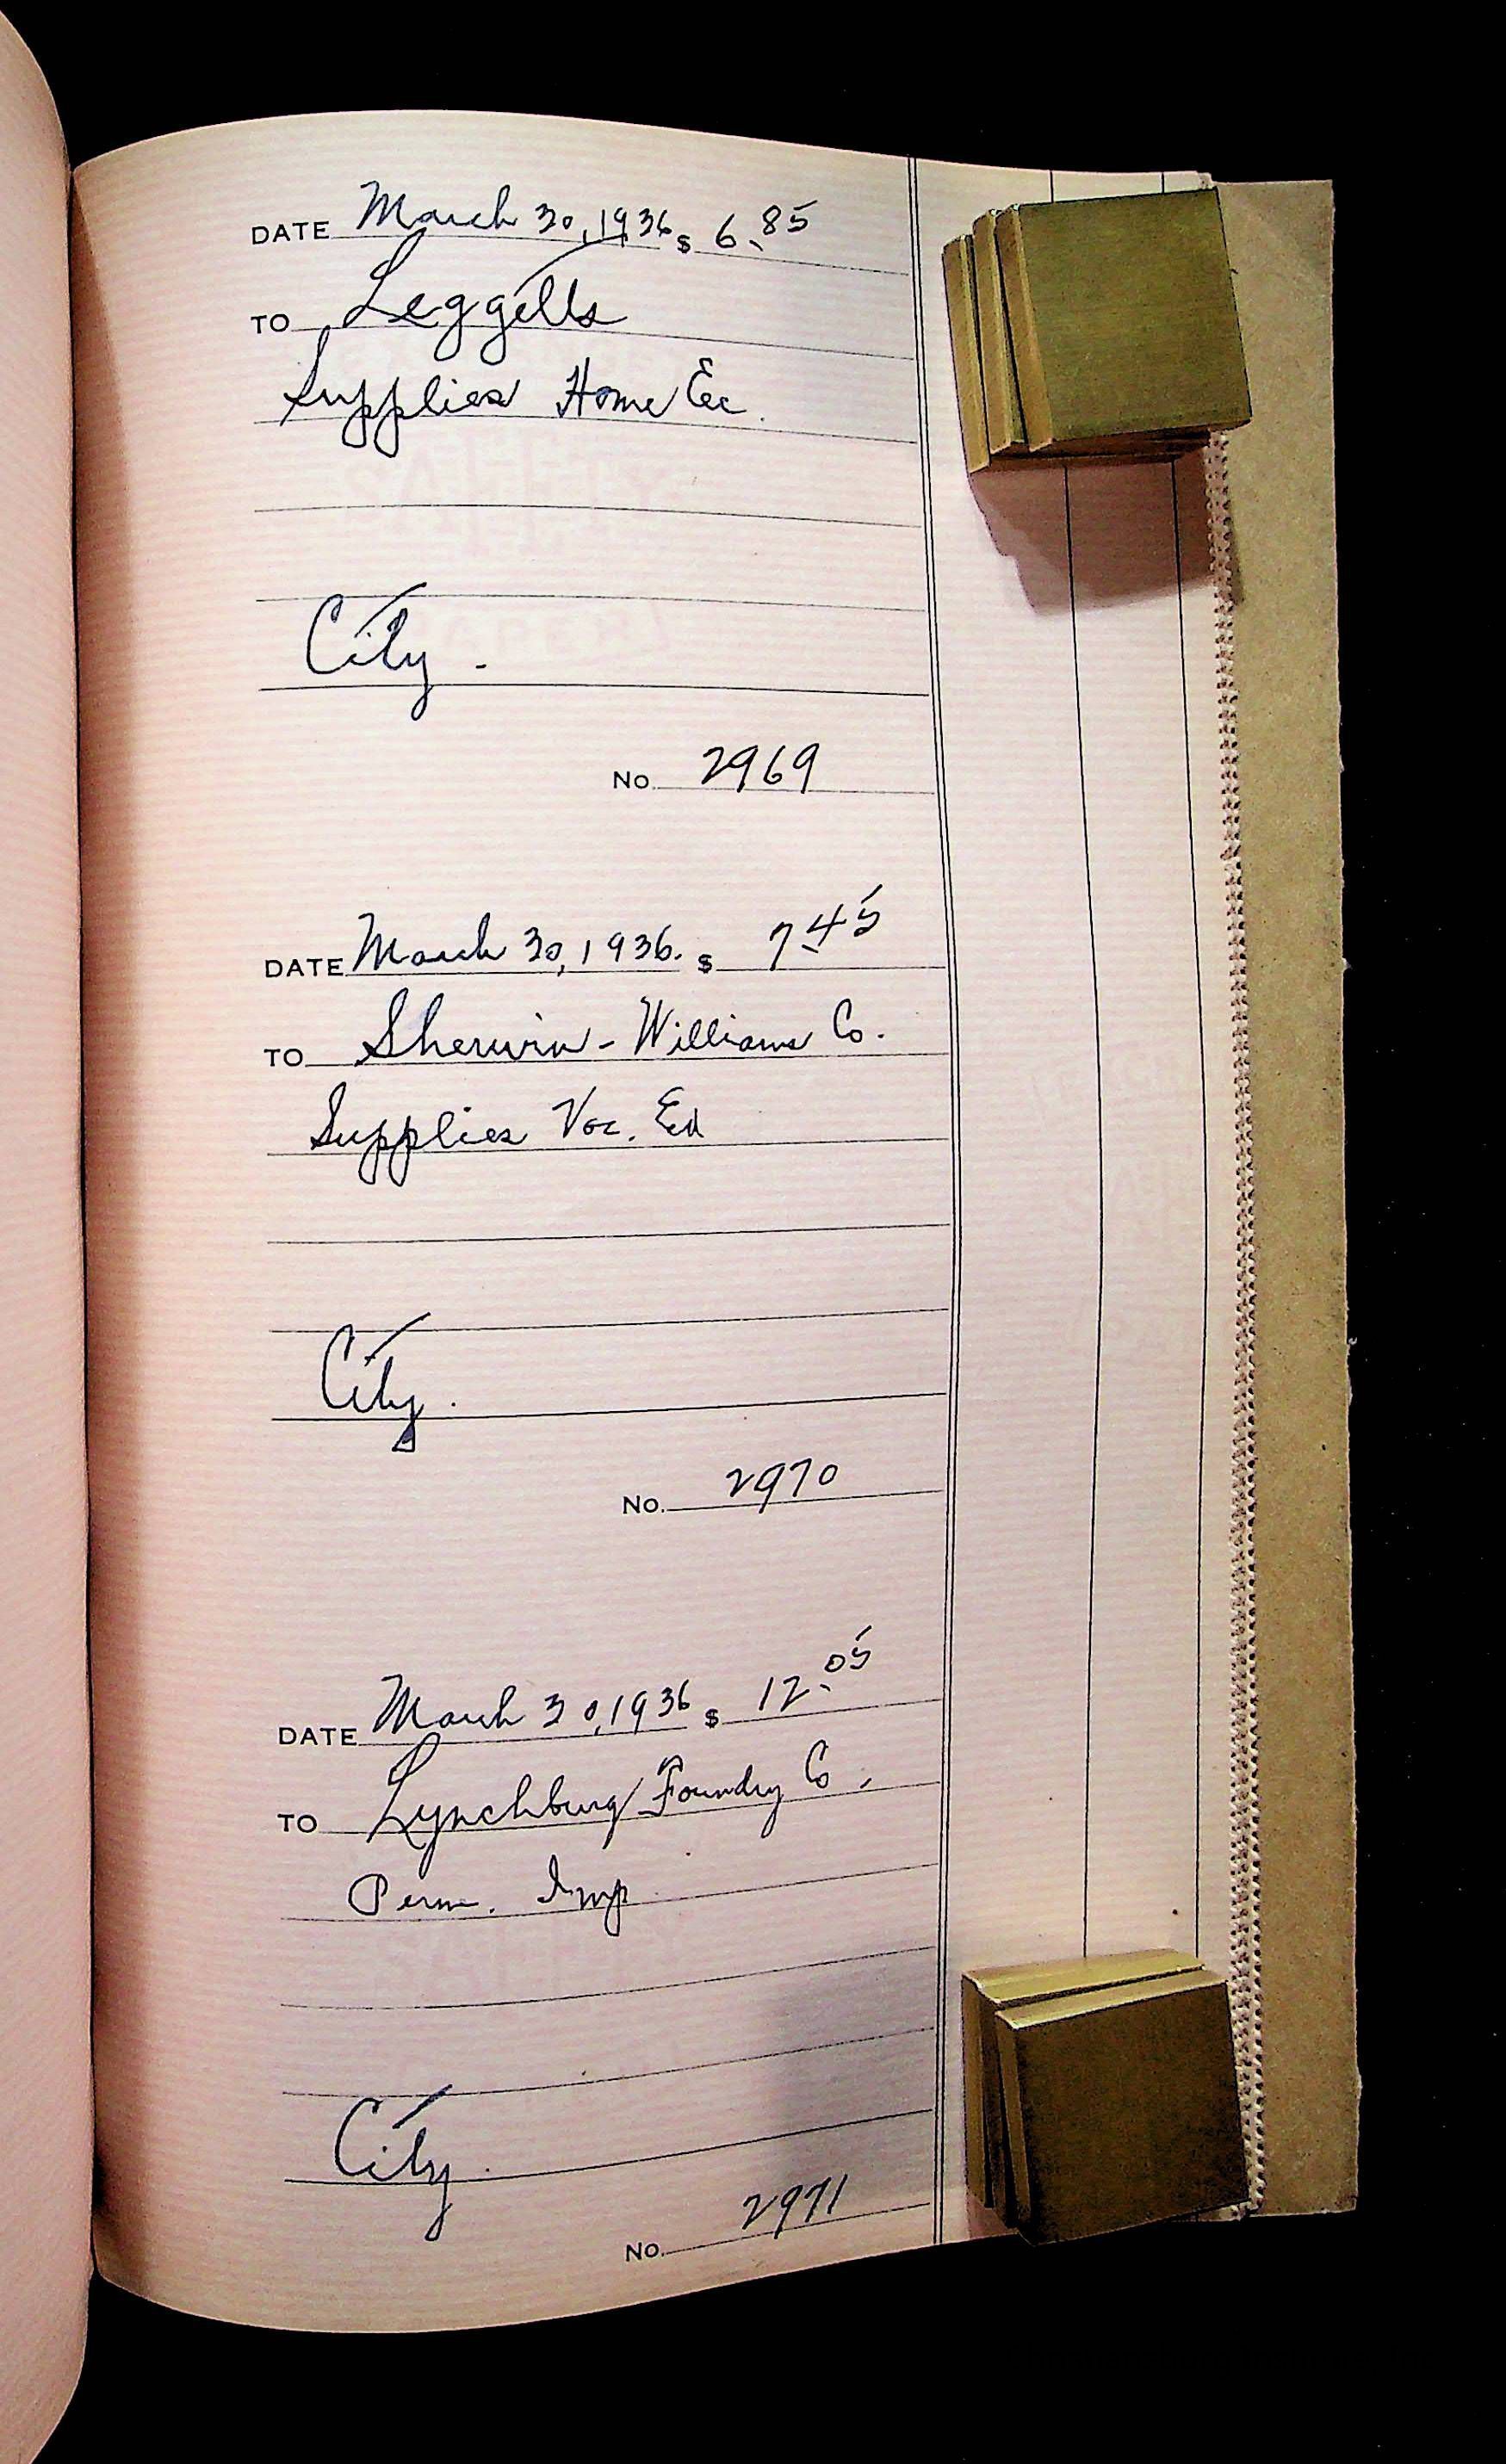 DATE March 30, 1936 $ 6.85
TO Leggetts
Supplies Home Ec.
City.
No. 2969
DATE March 30, 1936. $ 7.45
TO Sherwin-Williams Co.
Supplies Voc. Ed
City.
No. 2970
DATE March 30, 1936 $ 12.05
TO Lynchburg Foundry Co.
Perm. Imp
City.
No. 2971